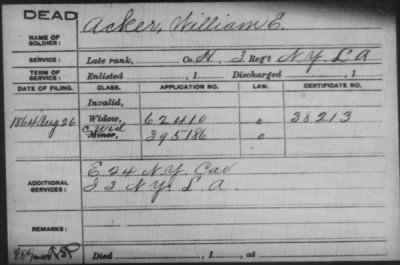 DEAD
NAME OF SOLDIER: Acker, William E.
SERVICE: Late rank, Co. H, 3 Reg't N.Y. L A
TERM OF SERVICE: Enlisted , 1 Discharged , 1
DATE OF FILING. CLASS. APPLICATION NO. LAW. CERTIFICATE NO.
Invalid,
1864 Aug 26 Widow, 62410 o 28213
C Wid
Minor, 395186 o
ADDITIONAL SERVICES: E 24 N.Y. Cav
I 3 N.Y. L A.
REMARKS:
Died , 1 , at